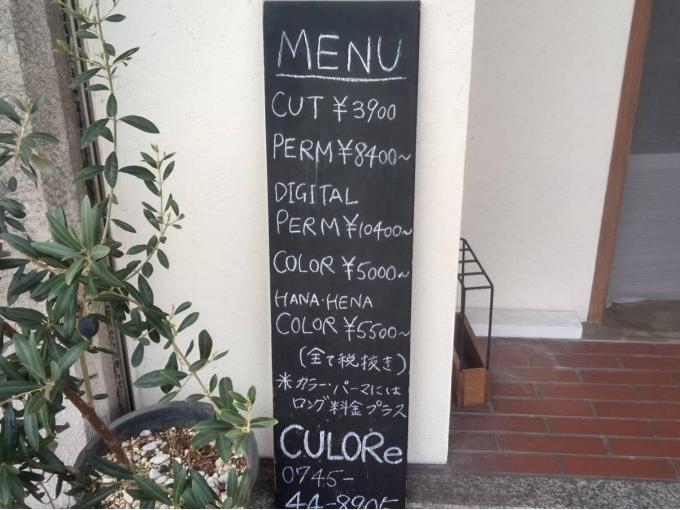 MENU
CUT ¥3900
PERM ¥8400~
DIGITAL
PERM ¥10400~
COLOR ¥5000~
HANA·HENA
COLOR ¥5500~
(全て税抜き)
※カラー・パーマには
ロング料金プラス
CULORe
0745-
44-8905